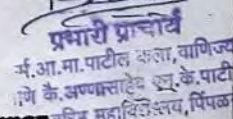 प्रभारी प्राचार्य
र्म.आ.मा.पाटील कला, वाणिज्य
णि कै.अण्णासाहेब एन.के.पाटी
महाविद्यालय, पिंपळ